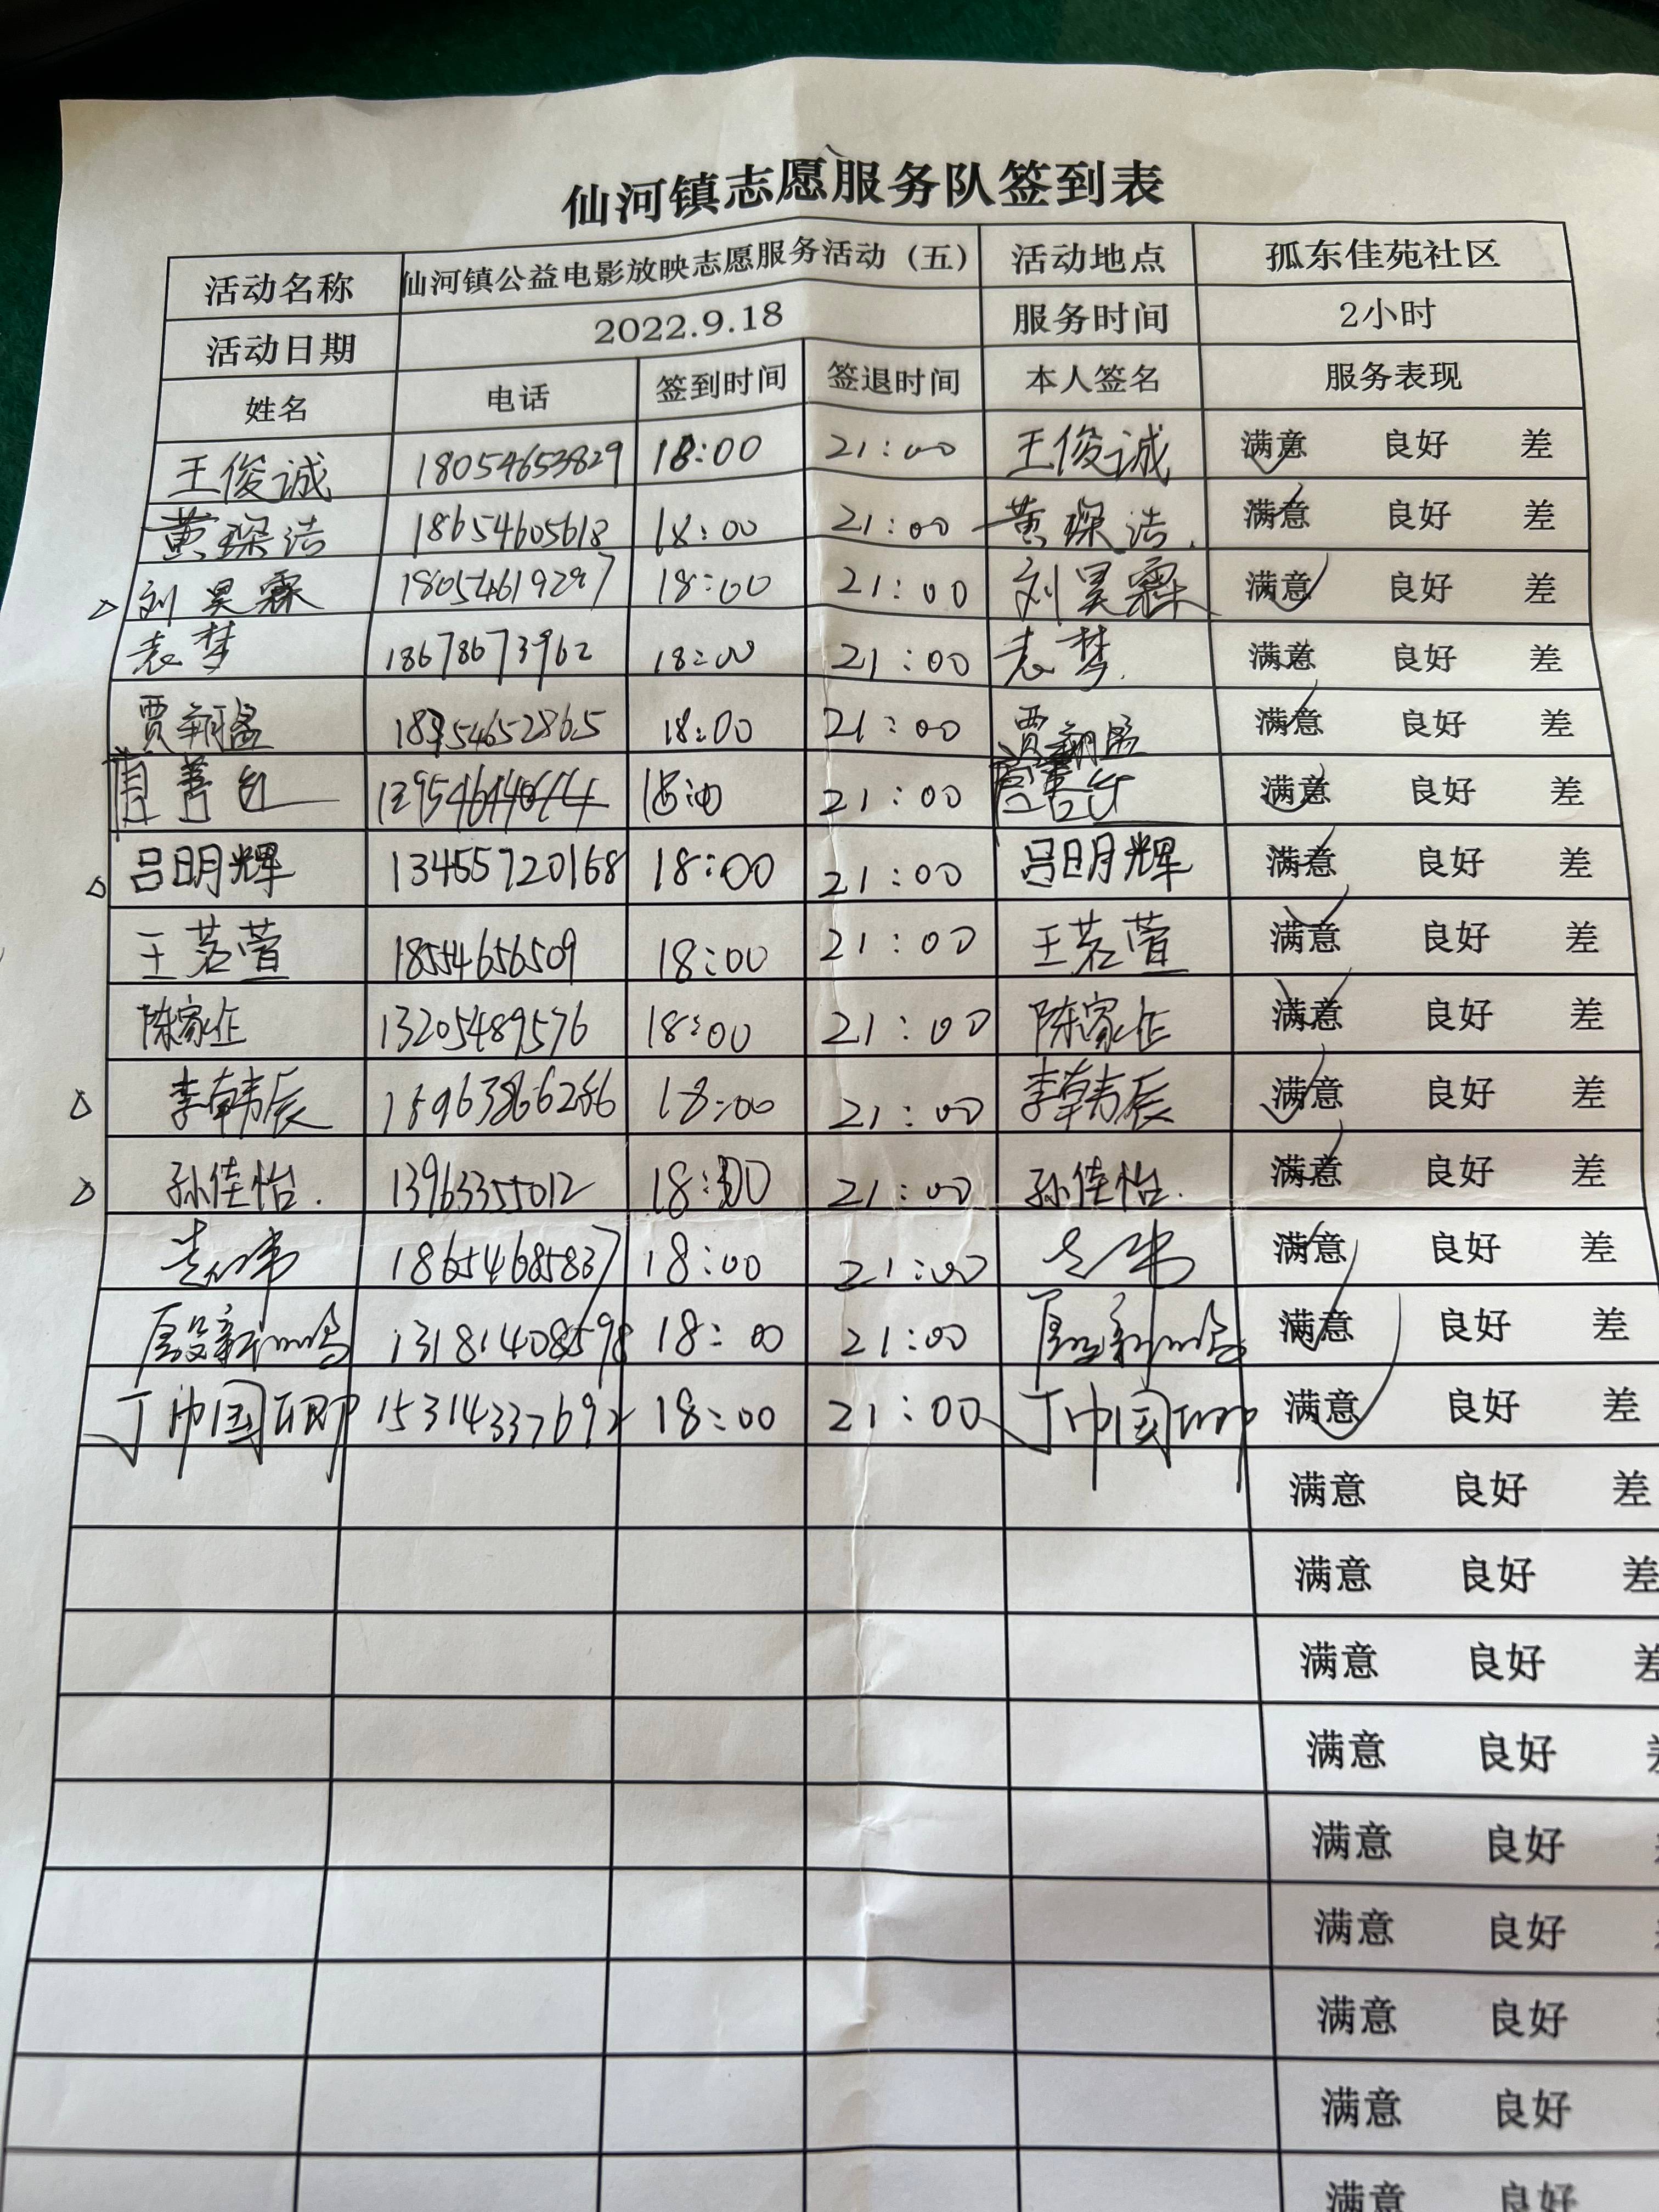 仙河镇志愿服务队签到表
活动名称 仙河镇公益电影放映志愿服务活动（五） 活动地点 孤东佳苑社区
活动日期 2022.9.18 服务时间 2小时
姓名 电话 签到时间 签退时间 本人签名 服务表现
王俊诚 18054653829 18:00 21:00 王俊诚 满意 良好 差
黄琛洁 18654605618 18:00 21:00 黄琛洁 满意 良好 差
刘昊霖 18054619297 18:00 21:00 刘昊霖 满意 良好 差
袁梦 18678673962 18:00 21:00 袁梦 满意 良好 差
贾翱孟 18954652865 18:00 21:00 贾翱孟 满意 良好 差
18:00 21:00 满意 良好 差
吕明辉 13455720168 18:00 21:00 吕明辉 满意 良好 差
王茗萱 18554656509 18:00 21:00 王茗萱 满意 良好 差
陈家 13205489576 18:00 21:00 陈家 满意 良好 差
李韩辰 18:00 21:00 李韩辰 满意 良好 差
孙佳怡. 13963355012 18:00 21:00 孙佳怡. 满意 良好 差
18654685837 18:00 21:00 满意 良好 差
13181408598 18:00 21:00 满意 良好 差
丁帼 15314337692 18:00 21:00 丁帼 满意 良好 差
满意 良好 差
满意 良好 差
满意 良好 差
满意 良好
满意 良好
满意 良好
满意 良好
满意 良好
满意 良好